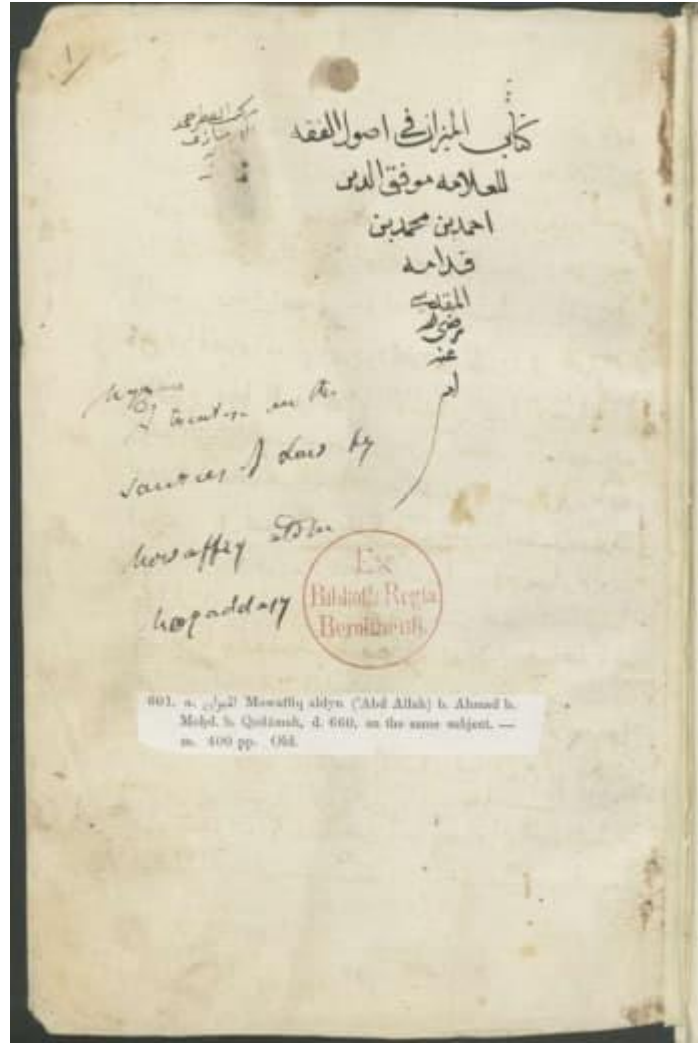 ١
كتاب الميزان في اصول الفقه
للعلامه موفق الدين
احمد بن محمد بن
قدامه
المقدسي
رضي الله
عنه
a treatise on the
sources of Law by
Mowaffaq aldin
Moqaddasy
Ex
Biblioth. Regia
Berolinenſi.
601. a. الميزان Mowaffiq aldyn ('Abd Allah) b. Ahmad b.
Mohd. b. Qodámah, d. 660, on the same subject. —
m. 400 pp. Old.